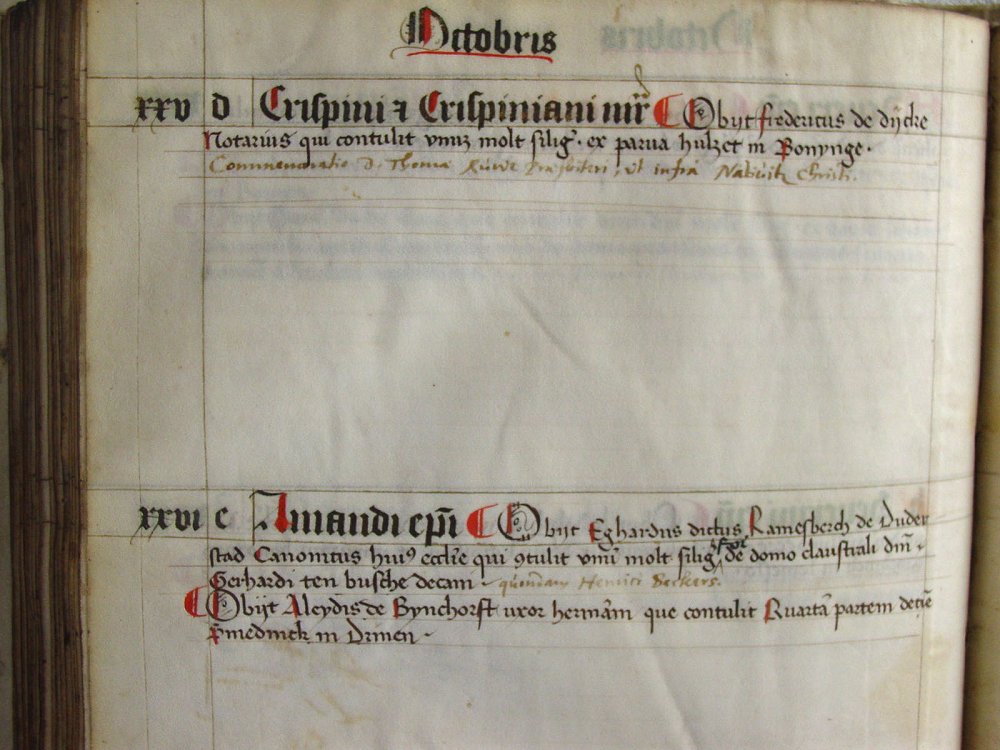 Octobris
xxv d Crispini ⁊ Crispiniani mr̄ Obijt fredericus de dijcke
Notarius qui contulit vnuz molt silig̃. ex parua hulzet in Bonynge.
Commemoratio D. Thoma presbiteri, vt infra Natiuit Christi.
xxvi e Amandi ep̄i Obijt Eghardus dictus Ramesberch de Duder
stad Canonicus hui9 eccl̄ie qui 9tulit vnū molt silig̃ de domo claustrali dn̄i
Gerhardi ten busche decani quondam Henrici Beckers.
Obijt Aleydis de Bynchorst uxor hermāni que contulit Quartā partem decīe
in Drinen.